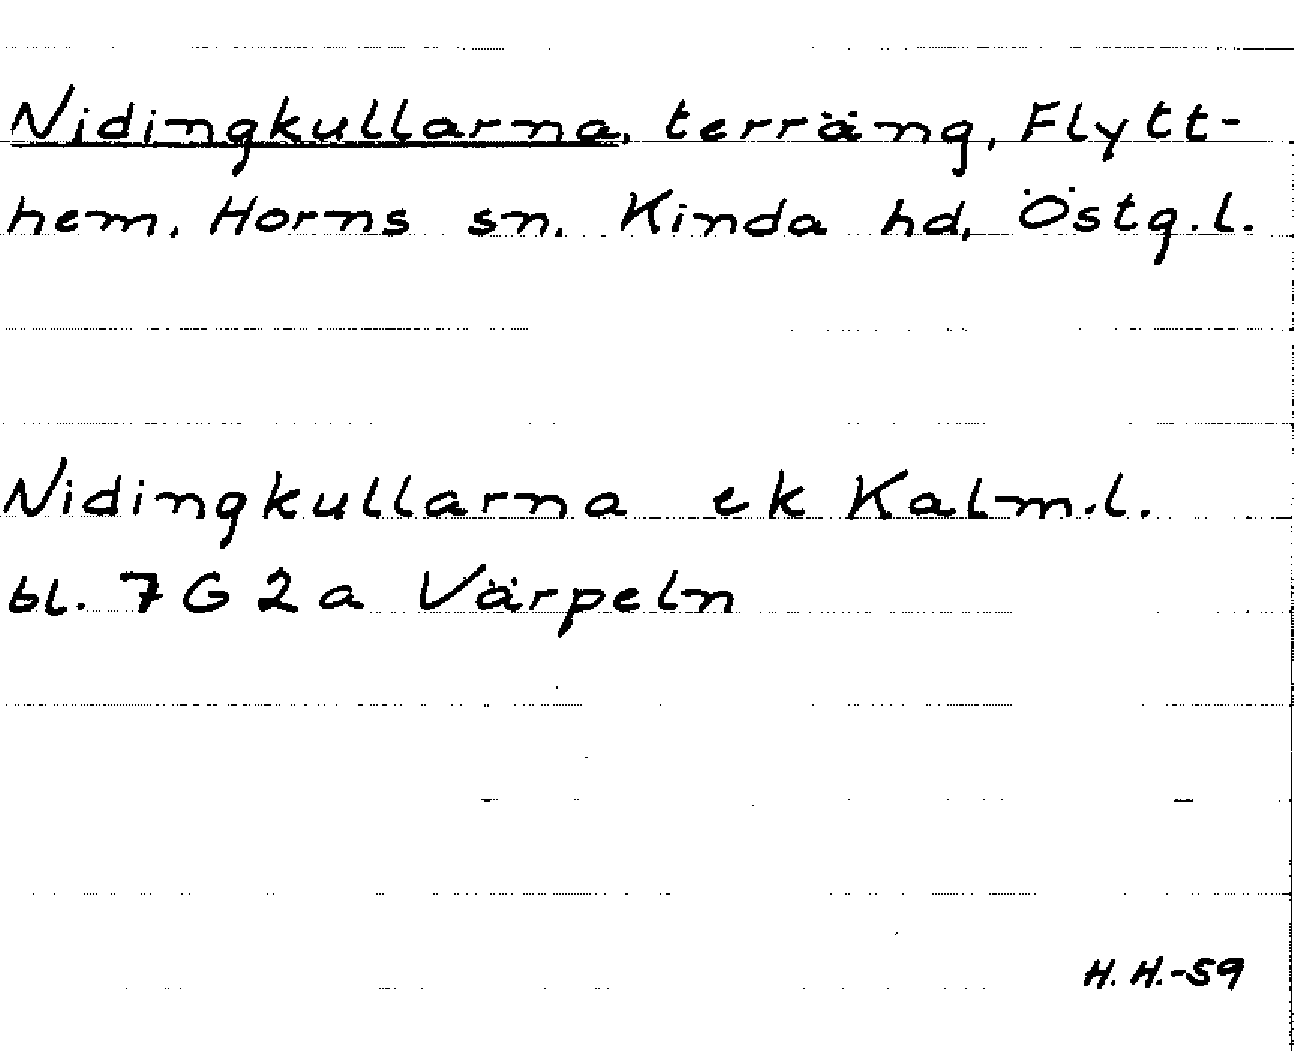 Nidingkullarna, terräng, Flytt-
hem, Horns sn, Kinda hd, Östg.l.
Nidingkullarna ek Kalm.l.
bl. 7 G 2 a Värpeln
H. H.-59